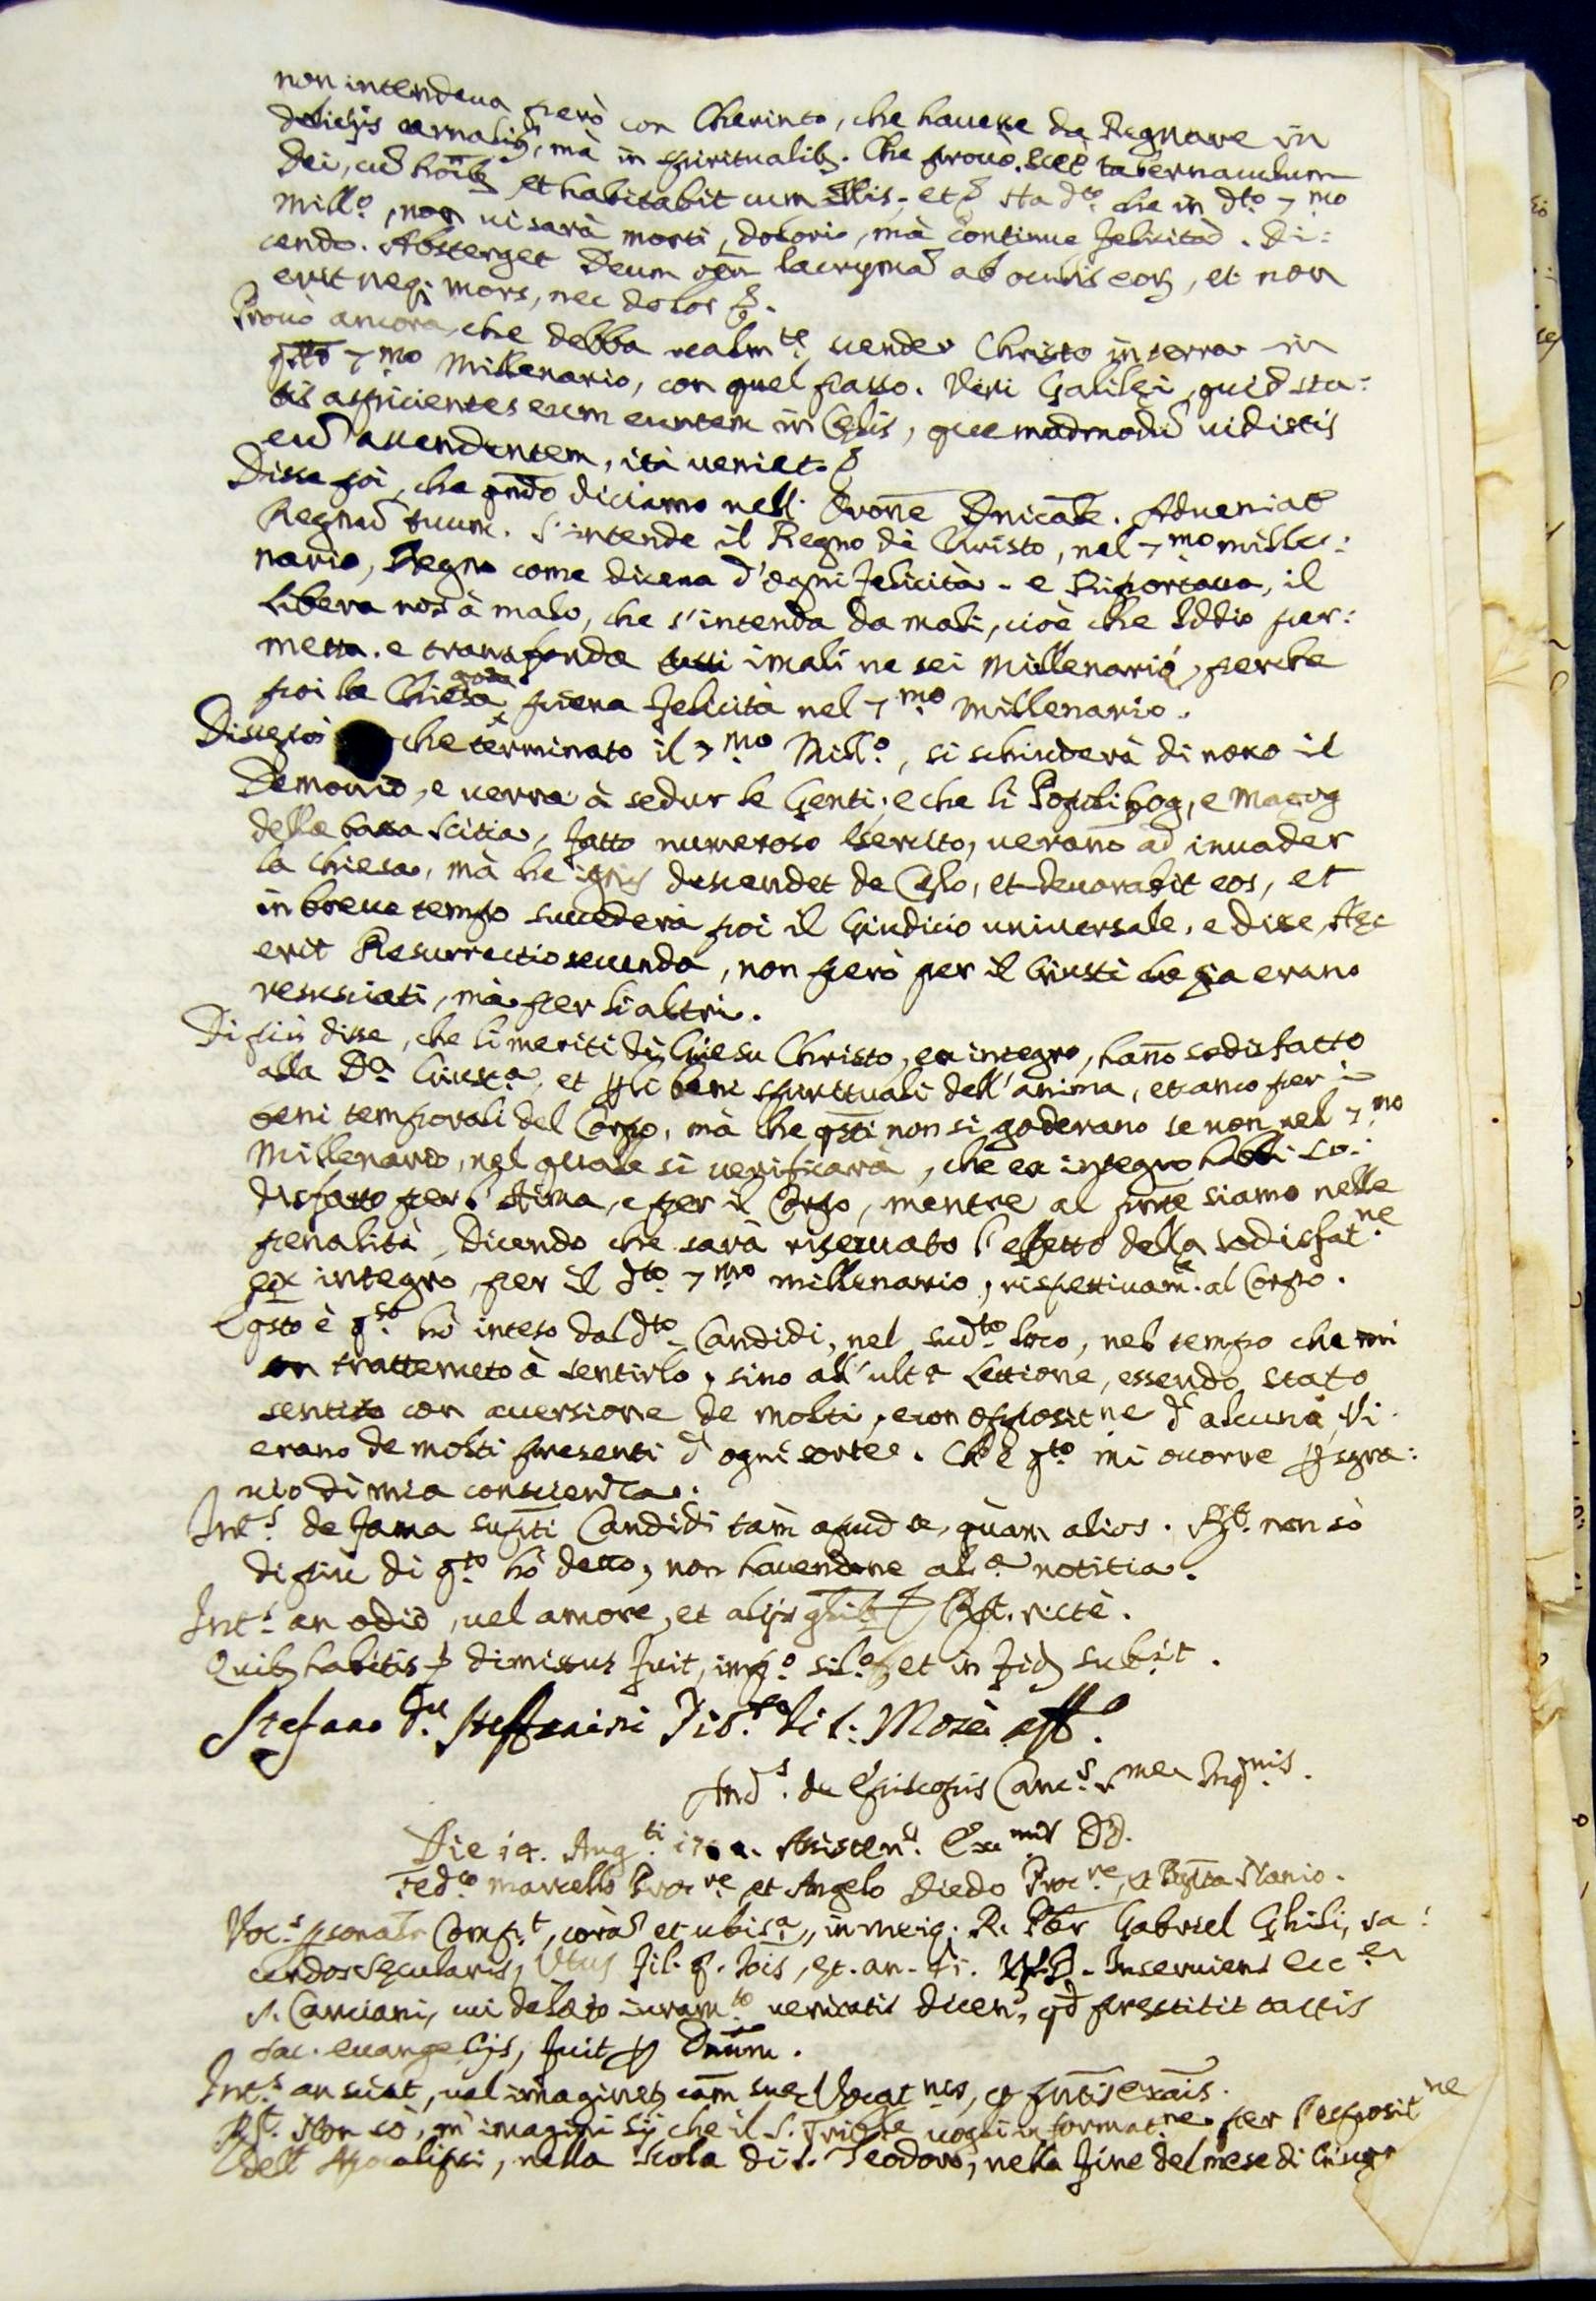 non intendeua però con Cherinto, che hauesse da Regnare in
delicijs carnalib9, mà in spiritualib9. Che prouò. Ecce tabernaculum
Dei, cũ hõib9 et habitabit cum illis; et p sta dto che in dto 7mo
Millo, non ui sarà morti, dolori, mà continue felicità. Di:
cendo. Absterget Deum oẽm lacrymã ab oculis eorũ, et non
erit neq; mors, nec dolor &.
Prouò ancora, che debba realmte uender Christo in terra in
qsto 7mo Millenario, con quel passo. Viri Galilei, quid sta:
tis aspicientes eum euntem in Celis, quemadmodũ uidistis
eũ ascendentem, ità ueniet &
Disse poi, che qndo diciamo nell' Orõne Dnicale. Adueniat
Regnũ tuum. s'intende il Regno di Christo, nel 7mo mille:
nario, Regno come diceua d'ogni felicità. e Riportaua, il
Libera nos à malo, che s'intenda da mali, cioè che Iddio per:
metta e transfonda tutti i mali ne sei Millenarij, perche
poi la Chiesa goda piena felicità nel 7mo Millenario.
Disse poi che terminato il 7mo Millo, si schiuderà di nouo il
Demonio, e uerrà à sedur le Genti; e che li Populi Gog, e Magog
della bassa Scitia, fatto numeroso Esercito, uerano ad inuader
la Chiesa, mà che ignis descendet de Celo, et deuorabit eos, et
in breue tempo succederà poi il Giudicio uniuersale, e disse, Hec
erit Resurrectio secunda, non però per il Giusti che gia erano
resusciati, mà per li altri.
Di più disse, che li meriti di Giesu Christo, ex integro, hano sodisfatto
alla Da Giusta, et p li beni spirituali dell'anima, et anco per i
beni temporali del Corpo, mà che qsti non si goderano se non nel 7mo
Millenario, nel quale si uerificarà, che ex integro habbi so:
disfatto per l'Anima, e per il Corpo, mentre al pnte siamo nelle
penalità, Dicendo che sarà riseruato l'effetto della sodisfatne
ex integro, per il dto 7mo millenario, rispettiuamte al Corpo.
E qsto è qto hò inteso dal dto Candidi, nel sudto loco, nel tempo che mi
son trattenuto à sentirlo, sino all'ulta Lettione, essendo stato
sentito con auersione de molti, e con oppositne d'alcuni, Vi
erano de molti presenti d'ogni sorte. Che è qto mi occorre p sgra:
uio di mia conscienza.
Ints de fama supti Candidi tam apud se, quam alios. Rt. non sò
di più di qto hò detto, non hauendone ala notitia.
Ints an odio, uel amore, et alijs gñlib9 & Rt. rectè.
Quib9 habitis & dimissus fuit, impo silo, et in fid9 subst.
Stefano qu Steffanini Tito di S. Mosè affo.
Ands de Episcopis Cancs smes Inqnis.
Die 14. Augti 170 . Assistens Excmis DD.
Fedco Marcello Procre, et Angelo Diedo Procre, et Btta Nanio.
Vocs psonalr Compt, corã et ubi sa, inmeiq. R. Pbr Gabriel Ghisi, sa:
cerdos secularis, Vtus fil. q. Jois, et. an. Inseruiens Eccae
S. Canciani, cui delato iuramto ueritatis dicen, qd prestitit tactis
sac. euangelijs, fuit p Dnum.
Ints an sciat, uel imaginet9 cam sue Vocatnis, et pntis exais.
Rt. Non sò, m'imagini sij che il S. Trible uogli informatne per l'espositne
dell'Apocalipsi, nella Scola di S. Teodoro, nella fine del mese di Giugo